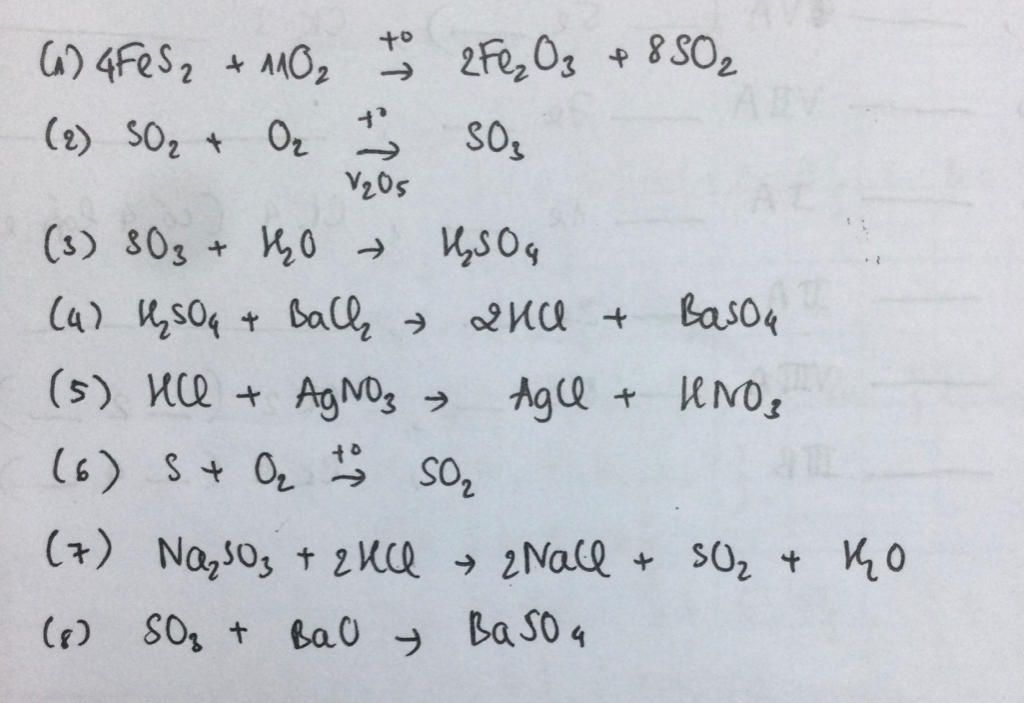 (1) 4FeS₂ + 11O₂ →^{t°} 2Fe₂O₃ + 8SO₂
(2) SO₂ + O₂ →^{t°}_{V₂O₅} SO₃
(3) SO₃ + H₂O → H₂SO₄
(4) H₂SO₄ + BaCl₂ → 2HCl + BaSO₄
(5) HCl + AgNO₃ → AgCl + HNO₃
(6) S + O₂ →^{t°} SO₂
(7) Na₂SO₃ + 2HCl → 2NaCl + SO₂ + H₂O
(8) SO₃ + BaO → BaSO₄